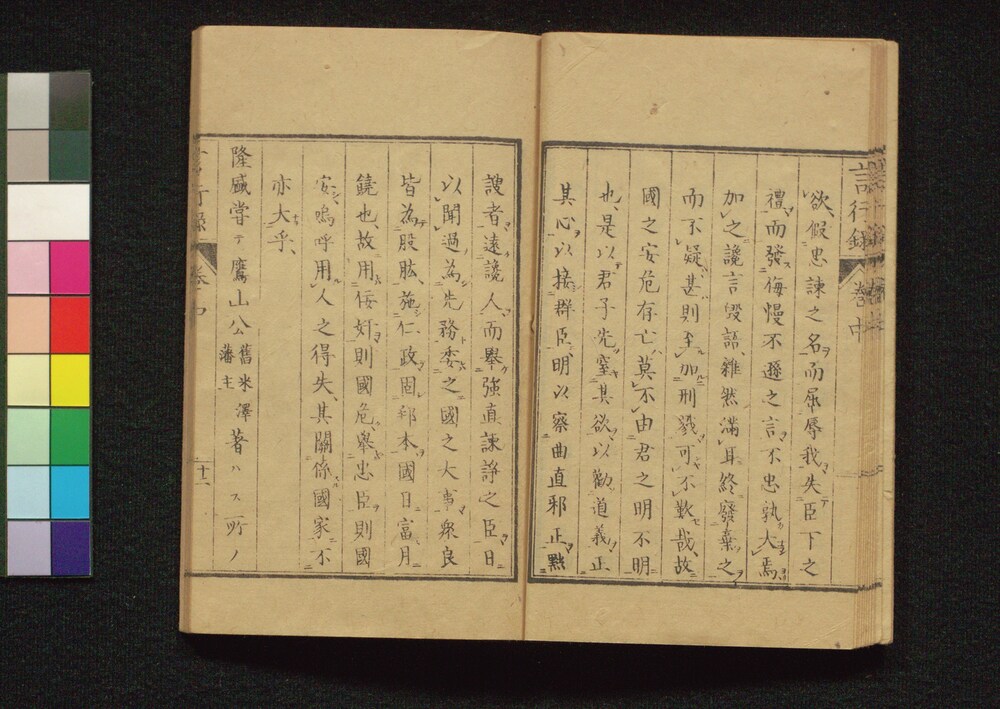 言行錄 卷中
欲、假忠諫之名而屈辱我失臣下之
禮而發侮慢不遜之言不忠孰大焉
加之讒言毀語、雜然滿耳終發棄之
而不疑甚則至加刑戮可不歎哉、故
國之安危存亡、莫不由君之明不明
也、是以君子先窒其欲、以勸道義正
其心、以接群臣、明以察曲直邪正、黜
諛者、遠讒人、而舉強直諫諍之臣、日
以聞過為先務、委之國之大事、衆良
皆為股肱、施仁政、固邦本、國日富月
饒也、故用佞奸則國危、舉忠臣則國
安、嗚呼用人之得失、其關係國家不
亦大乎、
隆盛嘗テ鷹山公舊米澤藩主著ハス所ノ
言行錄 卷中 十二